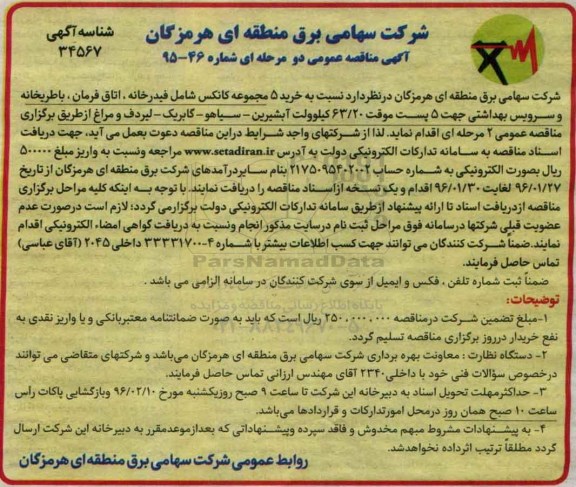 شرکت سهامی برق منطقه ای هرمزگان
آگهی مناقصه عمومی دو مرحله ای شماره ۴۶-۹۵
شناسه آگهی
۳۴۵۶۷
شرکت سهامی برق منطقه ای هرمزگان درنظردارد نسبت به خرید ۵ مجموعه کانکس شامل فیدرخانه ، اتاق فرمان ، باطریخانه
و سرویس بهداشتی جهت ۵ پست موقت ۶۳/۲۰ کیلوولت آبشیرین - سیاهو - گابریک - لیردف و مراغ ازطریق برگزاری
مناقصه عمومی ۲ مرحله ای اقدام نماید. لذا از شرکتهای واجد شرایط دراین مناقصه دعوت بعمل می آید، جهت دریافت
اسناد مناقصه به سامانه تدارکات الکترونیکی دولت به آدرس www.setadiran.ir مراجعه ونسبت به واریز مبلغ ۵۰۰۰۰۰
ریال بصورت الکترونیکی به شماره حساب ۲۱۷۵۰۹۵۴۰۲۰۰۲ بنام سایردرآمدهای شرکت برق منطقه ای هرمزگان از تاریخ
۹۶/۰۱/۲۷ لغایت ۹۶/۰۱/۳۰ اقدام و یک نسخه ازاسناد مناقصه را دریافت نمایند. با توجه به اینکه کلیه مراحل برگزاری
مناقصه ازدریافت اسناد تا ارائه پیشنهاد ازطریق سامانه تدارکات الکترونیکی دولت برگزارمی گردد؛ لازم است درصورت عدم
عضویت قبلی شرکتها درسامانه فوق مراحل ثبت نام درسایت مذکور انجام ونسبت به دریافت گواهی امضاء الکترونیکی اقدام
نمایند.ضمناً شرکت کنندگان می توانند جهت کسب اطلاعات بیشتر با شماره ۴-۳۳۳۳۱۷۰۰ داخلی ۲۰۴۵ (آقای عباسی)
تماس حاصل فرمایند.
ضمناً ثبت شماره تلفن ، فکس و ایمیل از سوی شرکت کنندگان در سامانه الزامی می باشد .
توضیحات:
۱-مبلغ تضمین شرکت درمناقصه ۲۵۰,۰۰۰,۰۰۰ ریال است که باید به صورت ضمانتنامه معتبربانکی و یا واریز نقدی به
نفع خریدار درروز برگزاری مناقصه تسلیم گردد.
۲- دستگاه نظارت : معاونت بهره برداری شرکت سهامی برق منطقه ای هرمزگان می‌باشد و شرکتهای متقاضی می توانند
درخصوص سؤالات فنی خود با داخلی۲۳۴۰ آقای مهندس ارزانی تماس حاصل فرمایند.
۳- حداکثرمهلت تحویل اسناد به دبیرخانه این شرکت تا ساعت ۹ صبح روزیکشنبه مورخ ۹۶/۰۲/۱۰ وبازگشایی پاکات رأس
ساعت ۱۰ صبح همان روز درمحل امورتدارکات و قراردادها می‌باشد.
۴- به پیشنهادات مشروط مبهم مخدوش و فاقد سپرده وپیشنهاداتی که بعدازموعدمقرر به دبیرخانه این شرکت ارسال
گردد مطلقاً ترتیب اثرداده نخواهدشد.
روابط عمومی شرکت سهامی برق منطقه ای هرمزگان
ParsNamadData